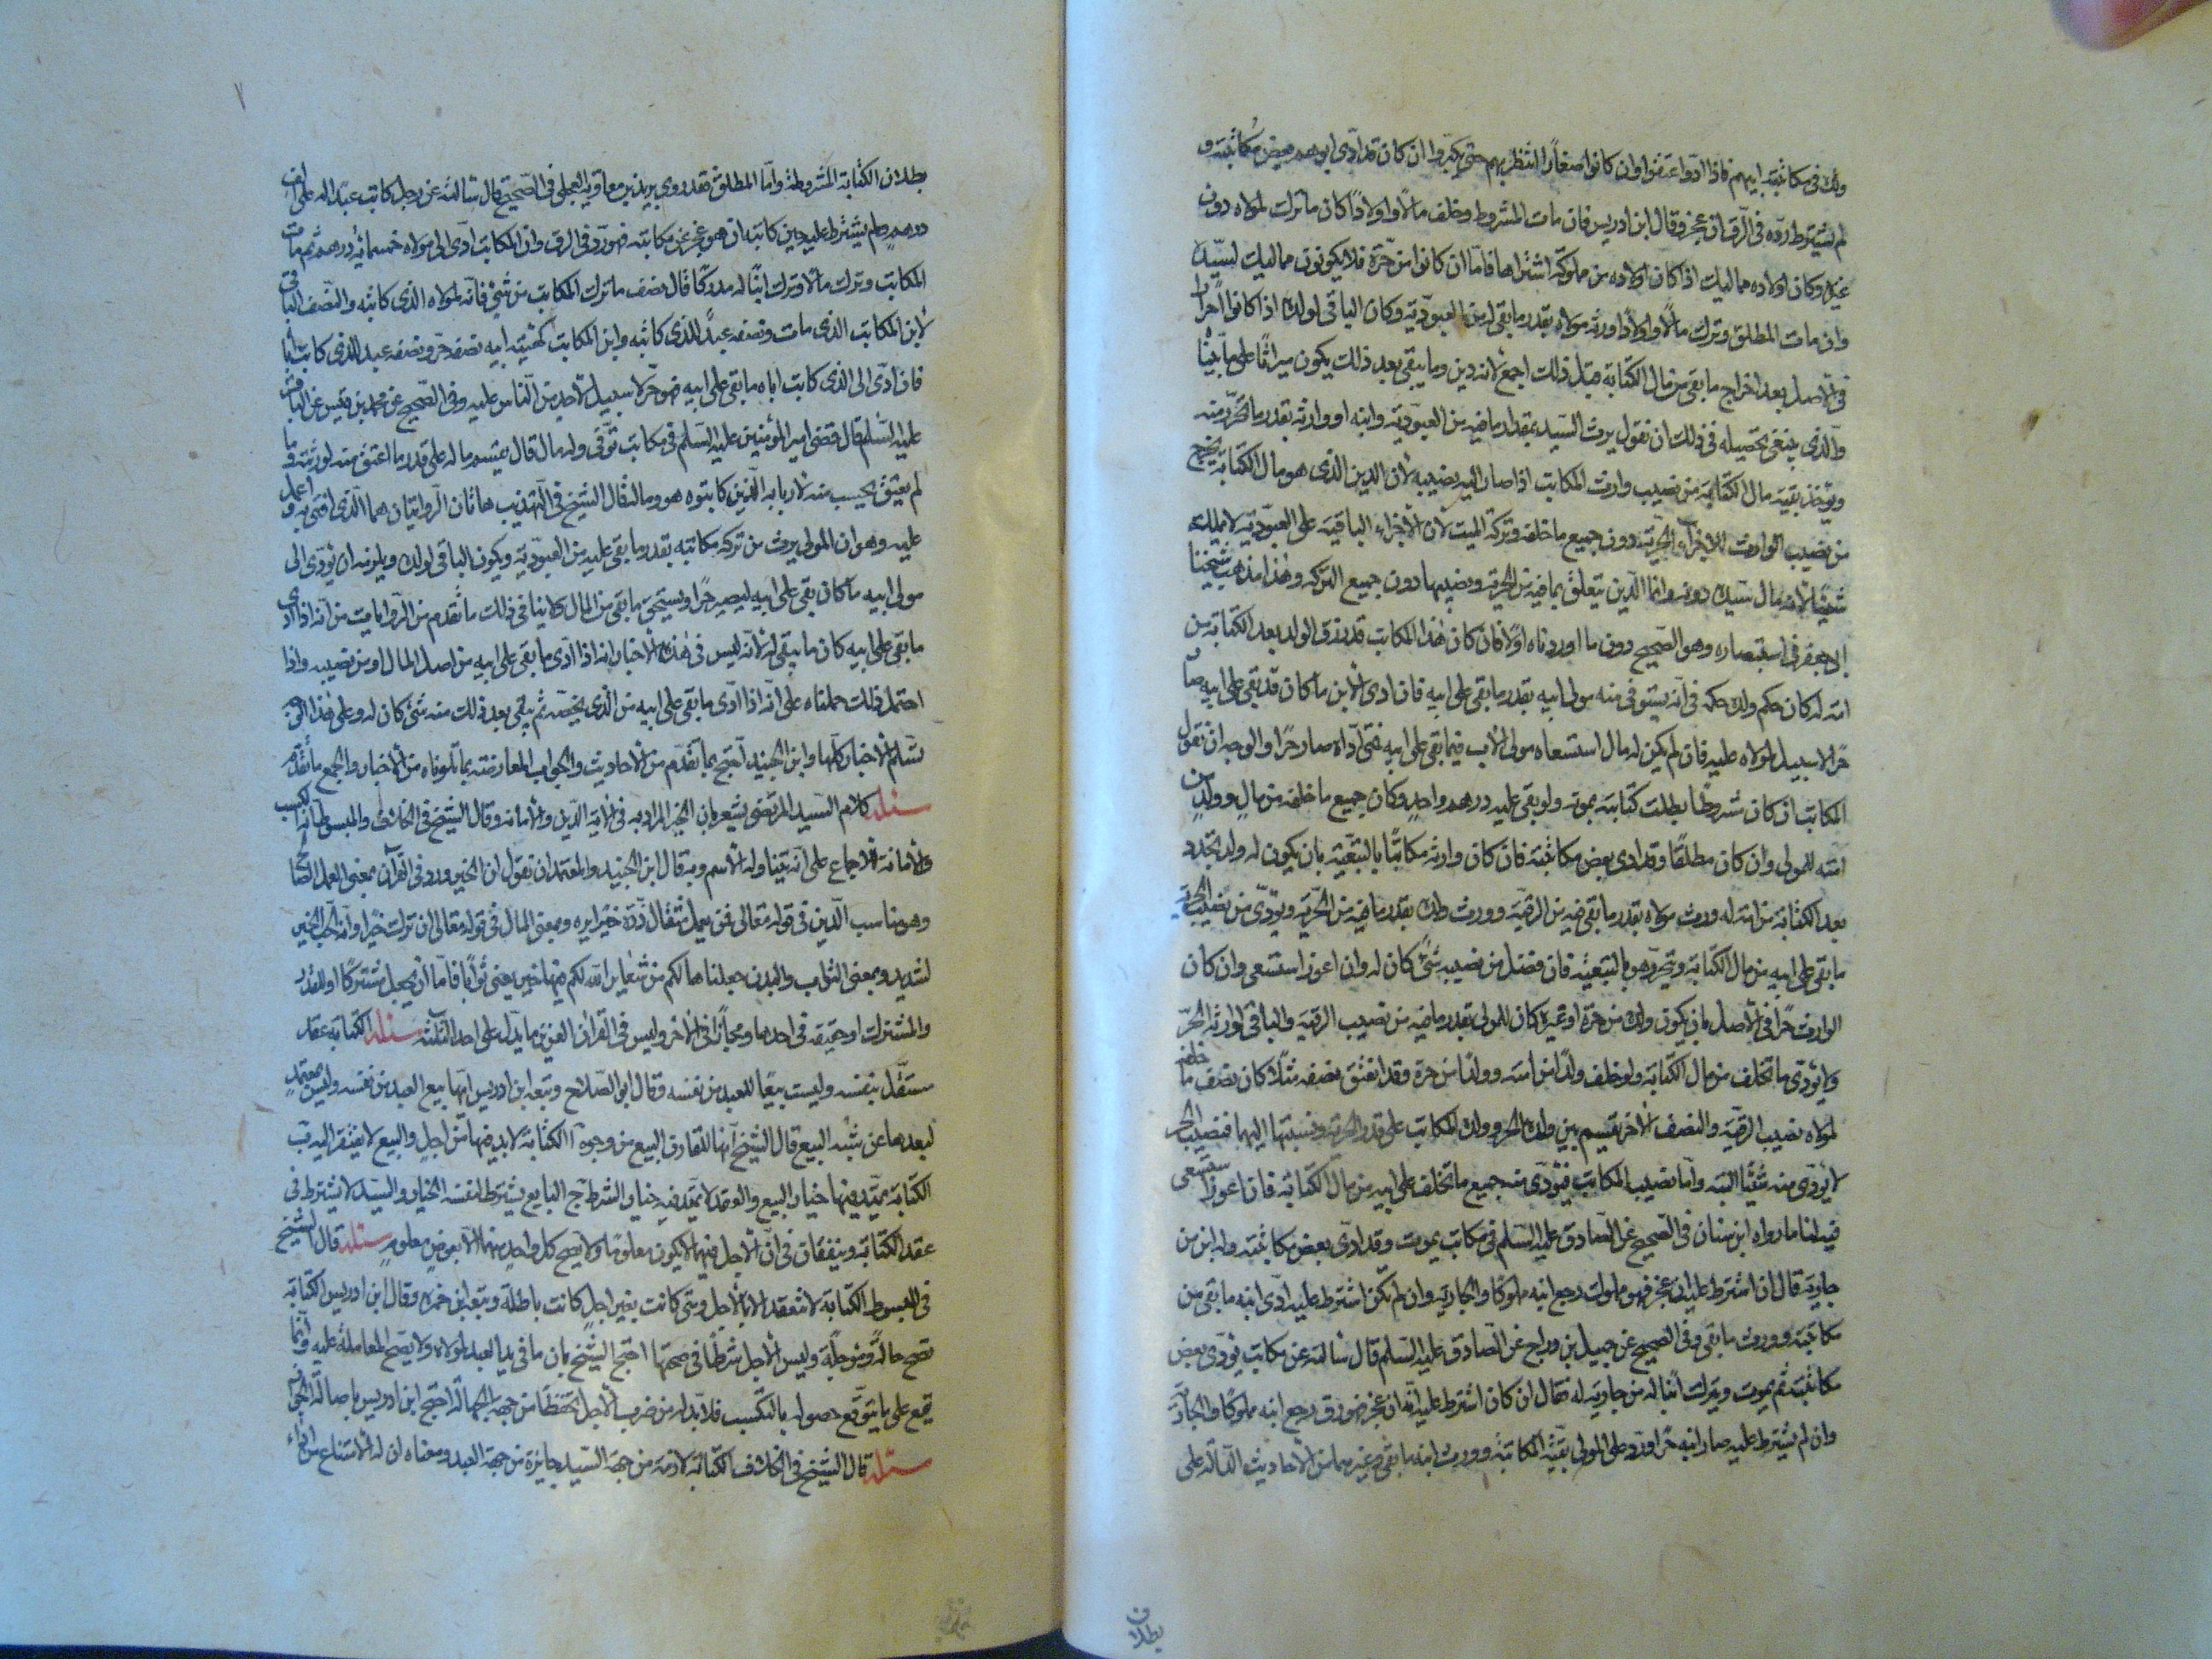 ولد في مكاتبته ابيهم فاذا ادوا عتقوا وان كانوا صغارا انتظر بهم حتى يكبروا ان كان قد ادى ابوهم بعض مكاتبته و
لم يشترط رده في الرق ان عجز وقال ابن ادريس فان مات المشروط وخلف مالا واولادا كان ما ترك لمولاه دون
غيره وكان اولاده مماليك اذا كان اولاده من مملوكة اشتراها فاما ان كانوا من حرة فلا يكونون مماليك لسيده
وان مات المطلق وترك مالا واولادا ورثه مولاه بقدر ما بقي له من العبودية وكان الباقي لولده اذا كانوا احرارا
في الاصل بعد اخراج ما بقي من مال الكتابة قبل ذلك اجمع لانه دين وما يبقى بعد ذلك يكون ميراثا على ما بيناه
والذي ينبغي تحصيله في ذلك ان نقول يرث السيد بمقدار ما فيه من العبودية وابنه او وارثه بقدر ما تحرر منه
ويؤخذ بقية مال الكتابة من نصيب وارث المكاتب اذا صار اليه نصيبه لان الدين الذي هو مال الكتابة يخرج
من نصيب الوارث للاجزاء الحرية دون جميع ما خلفه وتركه الميت لان الاجزاء الباقية على العبودية لا يملك
شيئا لانه مال سيده دونه وانما الدين يتعلق بما فيه من الحرية ونصيبها دون جميع التركة وهذا مذهب شيخنا
ابي جعفر في استبصاره وهو الصحيح دون ما اوردناه اولا فان كان هذا المكاتب قد رزق الولد بعد الكتابة من
امة له كان حكم ولده حكمه في انه يستوفي منه مولى ابيه بقدر ما بقي على ابيه فان ادى الابن ما كان قد بقي على ابيه صار
حرا لا سبيل لمولاه عليه فان لم يكن له مال استسعاه مولى الاب فيما بقي على ابيه فمتى اداه صار حرا والوجه ان نقول
المكاتب ان كان مشروطا بطلت كتابته بموته ولو بقي عليه درهم واحد وكان جميع ما خلفه من مال وولد من
امته للمولى وان كان مطلقا وقد ادى بعض مكاتبته فان كان وارثه مكاتبا بالتبعية بان يكون له ولد تجدد
بعد الكتابة من امته له ورث مولاه بقدر ما بقي فيه من الرقية وورث ولده بقدر ما فيه من الحرية ويؤدي من نصيب الحرية
ما بقي على ابيه من مال الكتابة ويتحرر هو بالتبعية فان فضل من نصيبه شئ كان له وان اعوز استسعى وان كان
الوارث حرا في الاصل بان يكون ولده من حرة او غيره كان للمولى بقدر ما فيه من نصيب الرقية والباقي لوارثه الحر
ولا يؤدي ما تخلف من مال الكتابة ولو خلف ولدا من امته وولدا من حرة وقد انعتق نصفه مثلا كان نصف ما خلفه
لمولاه نصيب الرقية والنصف الاخر يقسم بين ولده الحر وولده المكاتب على قدر الحرية ونسبتها اليهما فنصيب الحر
لا يؤدي منه شيئا البتة واما نصيب المكاتب فيؤدي منه جميع ما تخلف على ابيه من مال الكتابة فان اعوز استسعى
فيه لنا ما رواه ابن سنان في الصحيح عن الصادق عليه السلم في مكاتب يموت وقد ادى بعض مكاتبته وله ابن من
جاريته قال ان اشترط عليه ان عجز فهو مملوك رجع ابنه مملوكا والجارية وان لم يكن اشترط عليه ادى ابنه ما بقي من
مكاتبته وورث ما بقي وفي الصحيح عن جميل بن دراج عن الصادق عليه السلم قال سالته عن مكاتب يؤدي بعض
مكاتبته ثم يموت ويترك ابنا له من جاريته له فقال ان كان اشترط عليه انه ان عجز فهو رق رجع ابنه مملوكا والجارية
وان لم يشترط عليه صار ابنه حرا ورد على المولى بقية المكاتبة وورث ابنه ما بقي وغيرهما من الاحاديث الدالة على
بطلان
بطلان الكتابة المشروطة واما المطلق فقد روى بريد بن معاوية العجلي في الصحيح قال سالته عن رجل كاتب عبدا له على الف
درهم ولم يشترط عليه حين كاتبه ان هو عجز عن مكاتبته فهو رد في الرق وان المكاتب ادى الى مولاه خمسمائة درهم ثم مات
المكاتب وترك مالا وترك ابنا له مدركا قال نصف ما ترك المكاتب من شئ فانه لمولاه الذي كاتبه والنصف الباقي
لابن المكاتب الذي مات ونصفه عبد للذي كاتبه وابن المكاتب كهيئة ابيه نصفه حر ونصفه عبد للذي كاتب اباه
فان ادى الى الذي كاتب اباه ما بقي على ابيه فهو حر لا سبيل لاحد من الناس عليه وفي الصحيح عن محمد بن قيس عن الباقر
عليه السلم قال قضى امير المؤمنين عليه السلم في مكاتب توفي وله مال قال يقسم ماله على قدر ما اعتق منه لورثته وما
لم يعتق يحسب منه لاربابه الذين كاتبوه هو وماله قال الشيخ في التهذيب هاتان الروايتان هما الذي افتي به واعمل
عليه وهو ان المولى يرث من تركة مكاتبه بقدر ما بقي عليه من العبودية ويكون الباقي لولده ويلزمه ان يؤدي الى
مولى ابيه ما كان بقي على ابيه ليصير حرا ويستحق ما بقي من المال ولا ينافي ذلك ما تقدم من الروايات من انه اذا ادى
ما بقي على ابيه كان ما يبقى له لانه ليس في هذه الاخبار انه اذا ادى ما بقي على ابيه من اصل المال او من نصيبه واذا
احتمل ذلك حملناه على انه اذا ادى ما بقي على ابيه من الذي يخصه ثم يبقى بعد ذلك منه شئ كان له وعلى هذا الوجه
تسلم الاخبار كلها وابن الجنيد احتج بما تقدم من الاحاديث والجواب المعارضة بما تلوناه من الاخبار والجمع ما تقدم
مسئلة كلام السيد المرتضى يشعر بان الخير المراد به في الاية الدين والامانة وقال الشيخ في الخلاف والمبسوط انه الكسب
والامانة للاجماع على انه يتناوله الاسم وبه قال ابن الجنيد والمعتمد ان نقول ان الخير ورد في القرآن بمعنى العمل الصالح
وهو مناسب الدين في قوله تعالى فمن يعمل مثقال ذرة خيرا يره وبمعنى المال في قوله تعالى ان ترك خيرا وانه لحب الخير
لشديد وبمعنى الثواب والبدن جعلناها لكم من شعاير الله لكم فيها خير يعني ثوابا فاما ان يجعل مشتركا او للقدر
والمشترك او حقيقة في احدها ومجازا في الاخر وليس في القران العزيز ما يدل على احد الثلثة مسئلة الكتابة عقد
مستقل بنفسه وليست بيعا للعبد من نفسه وقال ابو الصلاح وتبعه ابن ادريس انها بيع العبد من نفسه وليس بمعتمد
لبعدها عن شبه البيع قال الشيخ انها تفارق البيع من وجوه ا الكتابة لا بد فيها من اجل والبيع لا يفتقر اليه ب
الكتابة يمتد فيها خيار البيع والعبد لا يمتد فيه خيار الشرط ج البايع يشترط لنفسه الخيار والسيد لا يشترط في
عقد الكتابة ويتفقان في ان الاجل فيهما لا يكون معلوما ولا يصح كل واحد منهما الا بعوض معلوم مسئلة قال الشيخ
في المبسوط الكتابة لا تنعقد الا بالاجل ومتى كانت بغير اجل كانت باطلة وتبعه ابن حمزة وقال ابن ادريس الكتابة
تصح حالة ومؤجلة وليس الاجل شرطا في صحتها احتج الشيخ بان ما في يد العبد لمولاه ولا يصح المعاملة عليه وانما
تقع على ما يتوقع حصوله بالتكسب فلا بد له من ضرب الاجل تحفظا من جهة الجهالة احتج ابن ادريس باصالة الجواز
مسئلة قال الشيخ في الخلاف الكتابة لازمة من جهة السيد جايزة من جهة العبد ومعناه ان له الامتناع من اداء